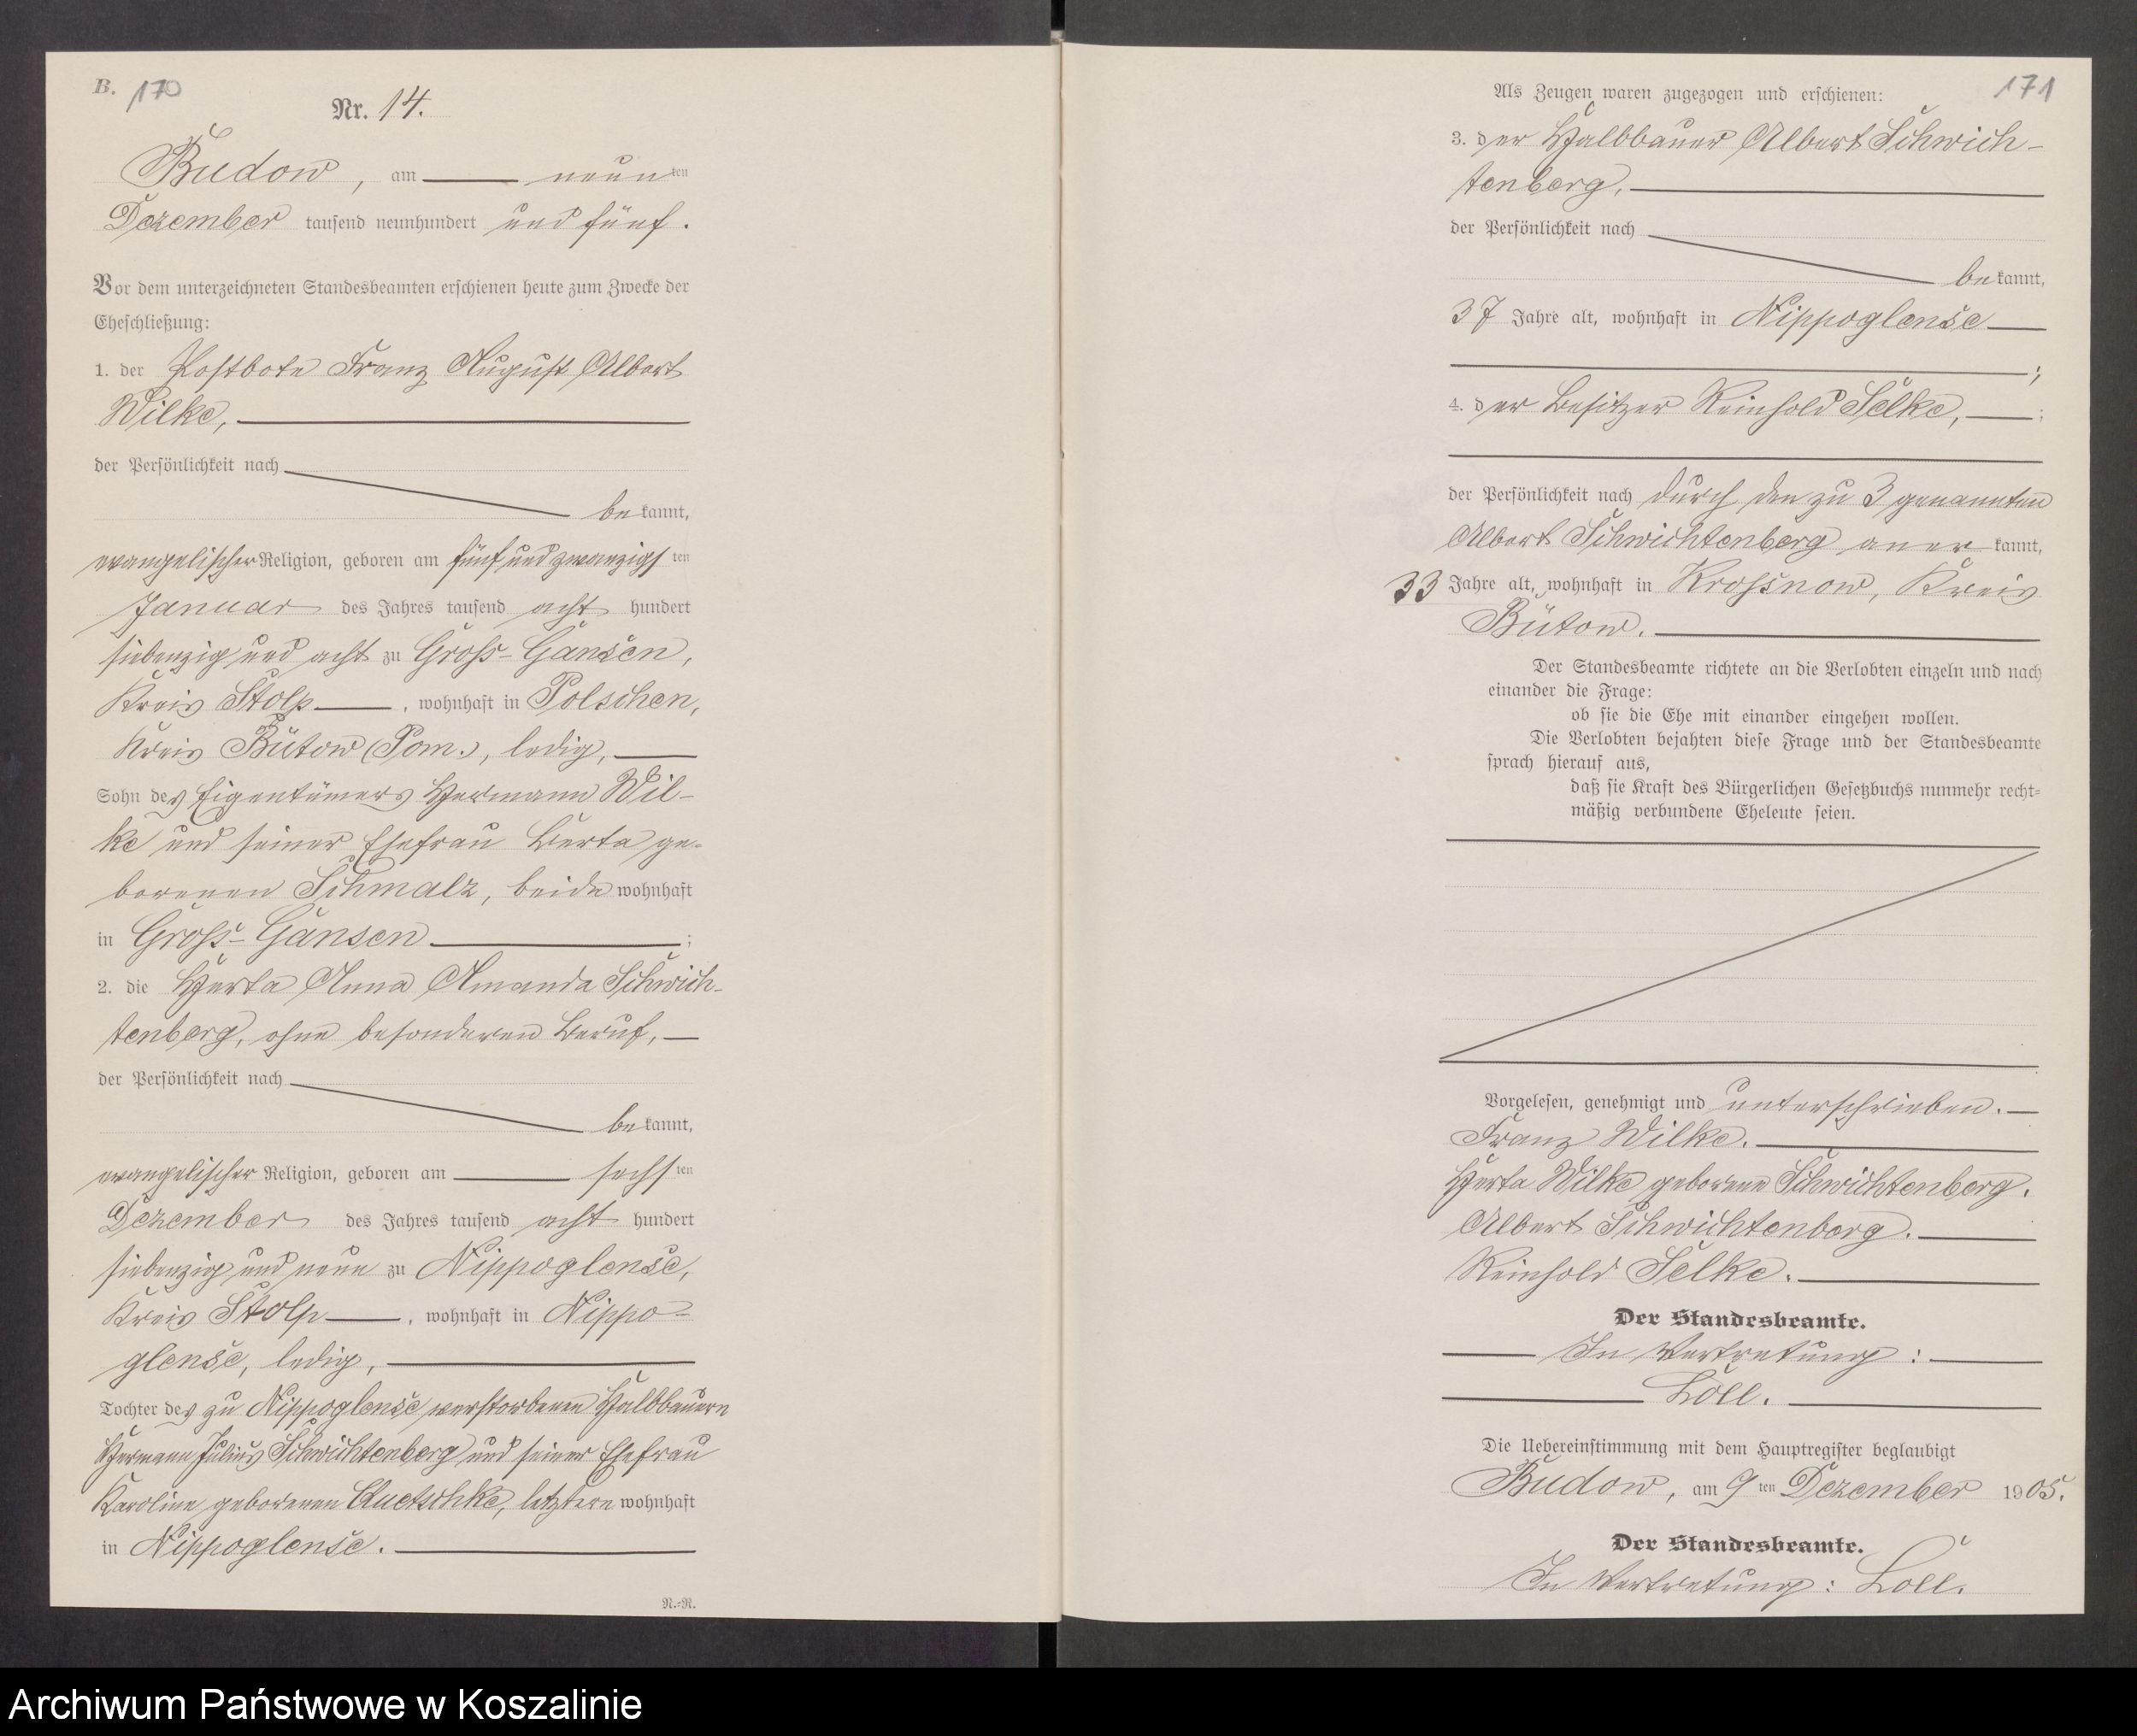 B. 170
Nr. 14.
Budow, am neunten
Dezember tausend neunhundert und fünf.
Vor dem unterzeichneten Standesbeamten erschienen heute zum Zwecke der
Eheschließung:
1. der Postbote Franz August Albert
Wilke,
der Persönlichkeit nach
bekannt,
evangelischer Religion, geboren am fünfundzwanzigsten
Januar des Jahres tausend achthundert
siebenzig und acht zu Gross-Gansen,
Kreis Stolp, wohnhaft in Polschen,
Kreis Bütow (Pom.), ledig,
Sohn des Eigentümers Hermann Wil-
ke und seiner Ehefrau Berta ge-
borenen Schmalz, beide wohnhaft
in Gross-Gansen;
2. die Herta Anna Amanda Schwich-
tenberg, ohne besonderen Beruf,
der Persönlichkeit nach
bekannt,
evangelischer Religion, geboren am sechsten
Dezember des Jahres tausend achthundert
siebenzig und neun zu Nippoglense,
Kreis Stolp, wohnhaft in Nippo-
glense, ledig,
Tochter des zu Nippoglense verstorbenen Halbbauern
Hermann Julius Schwichtenberg und seiner Ehefrau
Karoline geborenen Quetschke, letztere wohnhaft
in Nippoglense.
N.-N.
171
Als Zeugen waren zugezogen und erschienen:
3. der Halbbauer Albert Schwich-
tenberg,
der Persönlichkeit nach
bekannt,
37 Jahre alt, wohnhaft in Nippoglense
;
4. der Besitzer Reinhold Selke, ;
der Persönlichkeit nach durch den zu 3 genannten
Albert Schwichtenberg anerkannt,
33 Jahre alt, wohnhaft in Krossnow, Kreis
Bütow.
Der Standesbeamte richtete an die Verlobten einzeln und nach
einander die Frage:
ob sie die Ehe mit einander eingehen wollen.
Die Verlobten bejahten diese Frage und der Standesbeamte
sprach hierauf aus,
daß sie Kraft des Bürgerlichen Gesetzbuchs nunmehr recht-
mäßig verbundene Eheleute seien.
Vorgelesen, genehmigt und unterschrieben.
Franz Wilke.
Herta Wilke geborene Schwichtenberg.
Albert Schwichtenberg.
Reinhold Selke.
Der Standesbeamte.
In Vertretung:
Loll.
Die Uebereinstimmung mit dem Hauptregister beglaubigt
Budow, am 9ten Dezember 1905.
Der Standesbeamte.
In Vertretung: Loll.
Archiwum Państwowe w Koszalinie